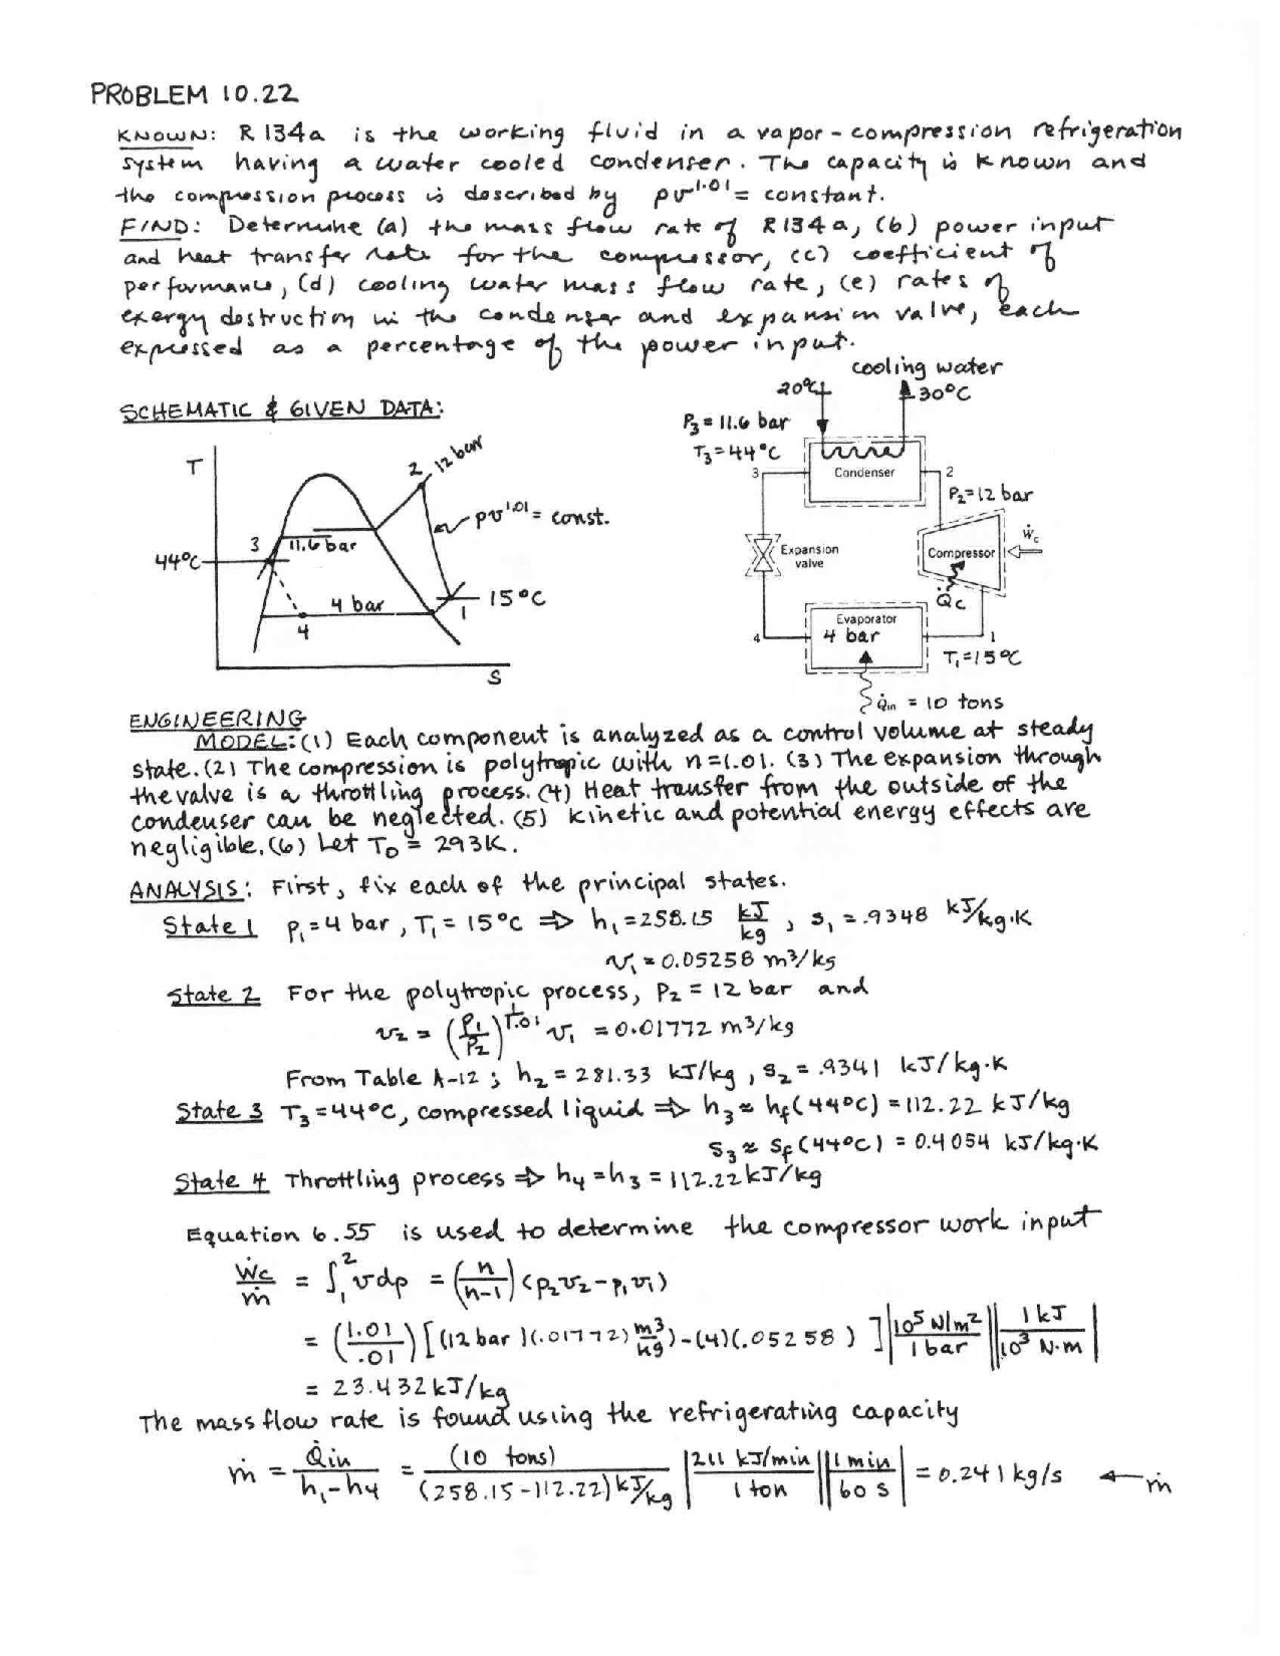 PROBLEM 10.22
KNOWN: R134a is the working fluid in a vapor-compression refrigeration
system having a water cooled condenser. The capacity is known and
the compression process is described by pv^1.01 = constant.
FIND: Determine (a) the mass flow rate of R134a, (b) power input
and heat transfer rate for the compressor, (c) coefficient of
performance, (d) cooling water mass flow rate, (e) rates of
exergy destruction in the condenser and expansion valve, each
expressed as a percentage of the power input.
SCHEMATIC & GIVEN DATA:
T
2
12 bar
pv^1.01 = const.
3
11.6 bar
44°C
4 bar
15°C
1
4
S
cooling water
20°C
30°C
P3 = 11.6 bar
T3 = 44°C
Condenser
3
2
P2 = 12 bar
Ẇc
Expansion
valve
Compressor
Q̇c
Evaporator
4 bar
4
1
T1 = 15°C
Q̇in = 10 tons
ENGINEERING
MODEL: (1) Each component is analyzed as a control volume at steady
state. (2) The compression is polytropic with n=1.01. (3) The expansion through
the valve is a throttling process. (4) Heat transfer from the outside of the
condenser can be neglected. (5) kinetic and potential energy effects are
negligible. (6) Let To = 293K.
ANALYSIS: First, fix each of the principal states.
State 1 P1 = 4 bar, T1 = 15°C ⇒ h1 = 258.15 kJ/kg, s1 = .9348 kJ/kg·K
v1 = 0.05258 m³/kg
State 2 For the polytropic process, P2 = 12 bar and
v2 = (P1/P2)^(1/1.01) v1 = 0.01772 m³/kg
From Table A-12; h2 = 281.33 kJ/kg, s2 = .9341 kJ/kg·K
State 3 T3 = 44°C, compressed liquid ⇒ h3 ≈ hf(44°C) = 112.22 kJ/kg
s3 ≈ sf(44°C) = 0.4054 kJ/kg·K
State 4 Throttling process ⇒ h4 = h3 = 112.22 kJ/kg
Equation 6.55 is used to determine the compressor work input
Ẇc/ṁ = ∫₁² vdp = (n/n-1)(p2v2 - p1v1)
= (1.01/.01)[(12 bar)(.01772) m³/kg) - (4)(.05258)] |10⁵ N/m²/1 bar||1 kJ/10³ N·m|
= 23.432 kJ/kg
The mass flow rate is found using the refrigerating capacity
ṁ = Q̇in/(h1-h4) = (10 tons)/(258.15-112.22) kJ/kg |211 kJ/min/1 ton||1 min/60 s| = 0.241 kg/s ← ṁ